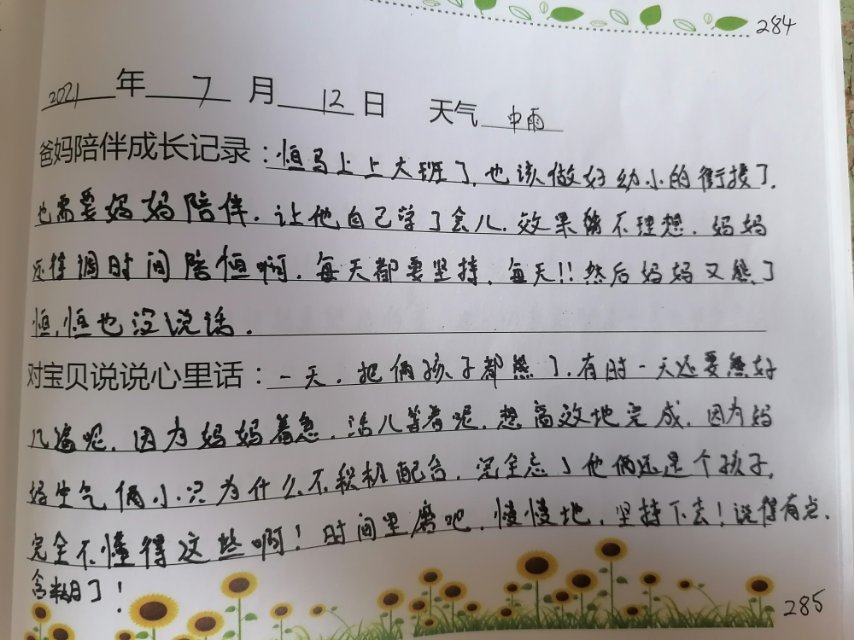 284
2021年 7月 12日 天气 中雨
爸妈陪伴成长记录：恒马上上大班了，也该做好幼小的衔接了，
也需要妈妈陪伴，让他自己学了会儿，效果稍不理想，妈妈
还得调时间陪恒啊，每天都要坚持，每天!!然后妈妈又熊了
恒，恒也没说话。
对宝贝说说心里话：一天，把俩孩子都熊了，有时一天还要熊好
几遍呢，因为妈妈着急，活儿等着呢，想高效地完成，因为妈
妈生气俩小只为什么不积极配合，完全忘了他俩还是个孩子，
完全不懂得这些啊！时间里磨吧，慢慢地，坚持下去！说得有点，
含糊了！
285